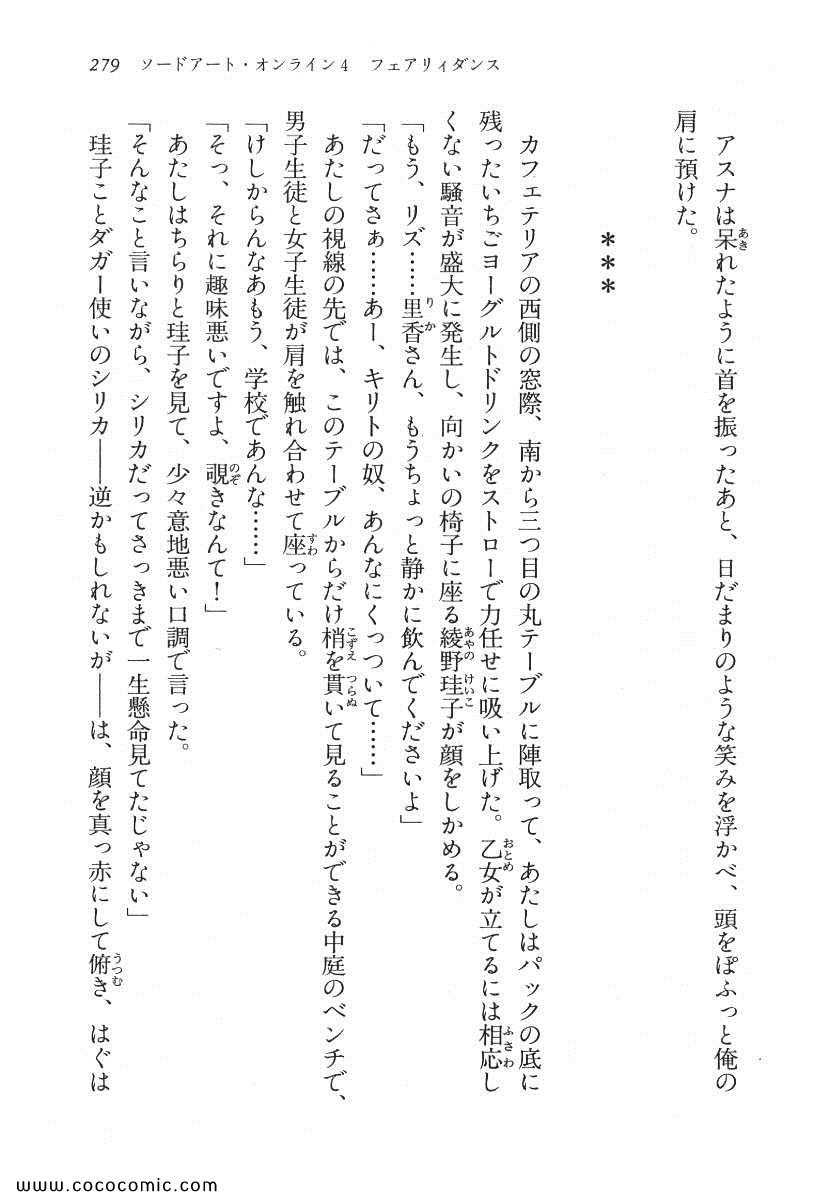 279　ソードアート・オンライン4　フェアリィダンス
　アスナは呆れたように首を振ったあと、日だまりのような笑みを浮かべ、頭をぽふっと俺の
肩に預けた。
＊＊＊
　カフェテリアの西側の窓際、南から三つ目の丸テーブルに陣取って、あたしはパックの底に
残ったいちごヨーグルトドリンクをストローで力任せに吸い上げた。乙女が立てるには相応し
くない騒音が盛大に発生し、向かいの椅子に座る綾野珪子が顔をしかめる。
「もう、リズ……里香さん、もうちょっと静かに飲んでくださいよ」
「だってさぁ……あー、キリトの奴、あんなにくっついて……」
　あたしの視線の先では、このテーブルからだけ梢を貫いて見ることができる中庭のベンチで、
男子生徒と女子生徒が肩を触れ合わせて座っている。
「けしからんなあもう、学校であんな……」
「そっ、それに趣味悪いですよ、覗きなんて！」
　あたしはちらりと珪子を見て、少々意地悪い口調で言った。
「そんなこと言いながら、シリカだってさっきまで一生懸命見てたじゃない」
　珪子ことダガー使いのシリカ――逆かもしれないが――は、顔を真っ赤にして俯き、はぐは
www.cococomic.com/